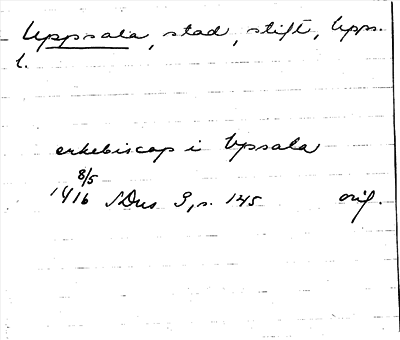 Uppsala, stad, stift, Upps.
l.
erkebiscop i Upsala
8/5
1416 SDns 3, s. 145 orig.